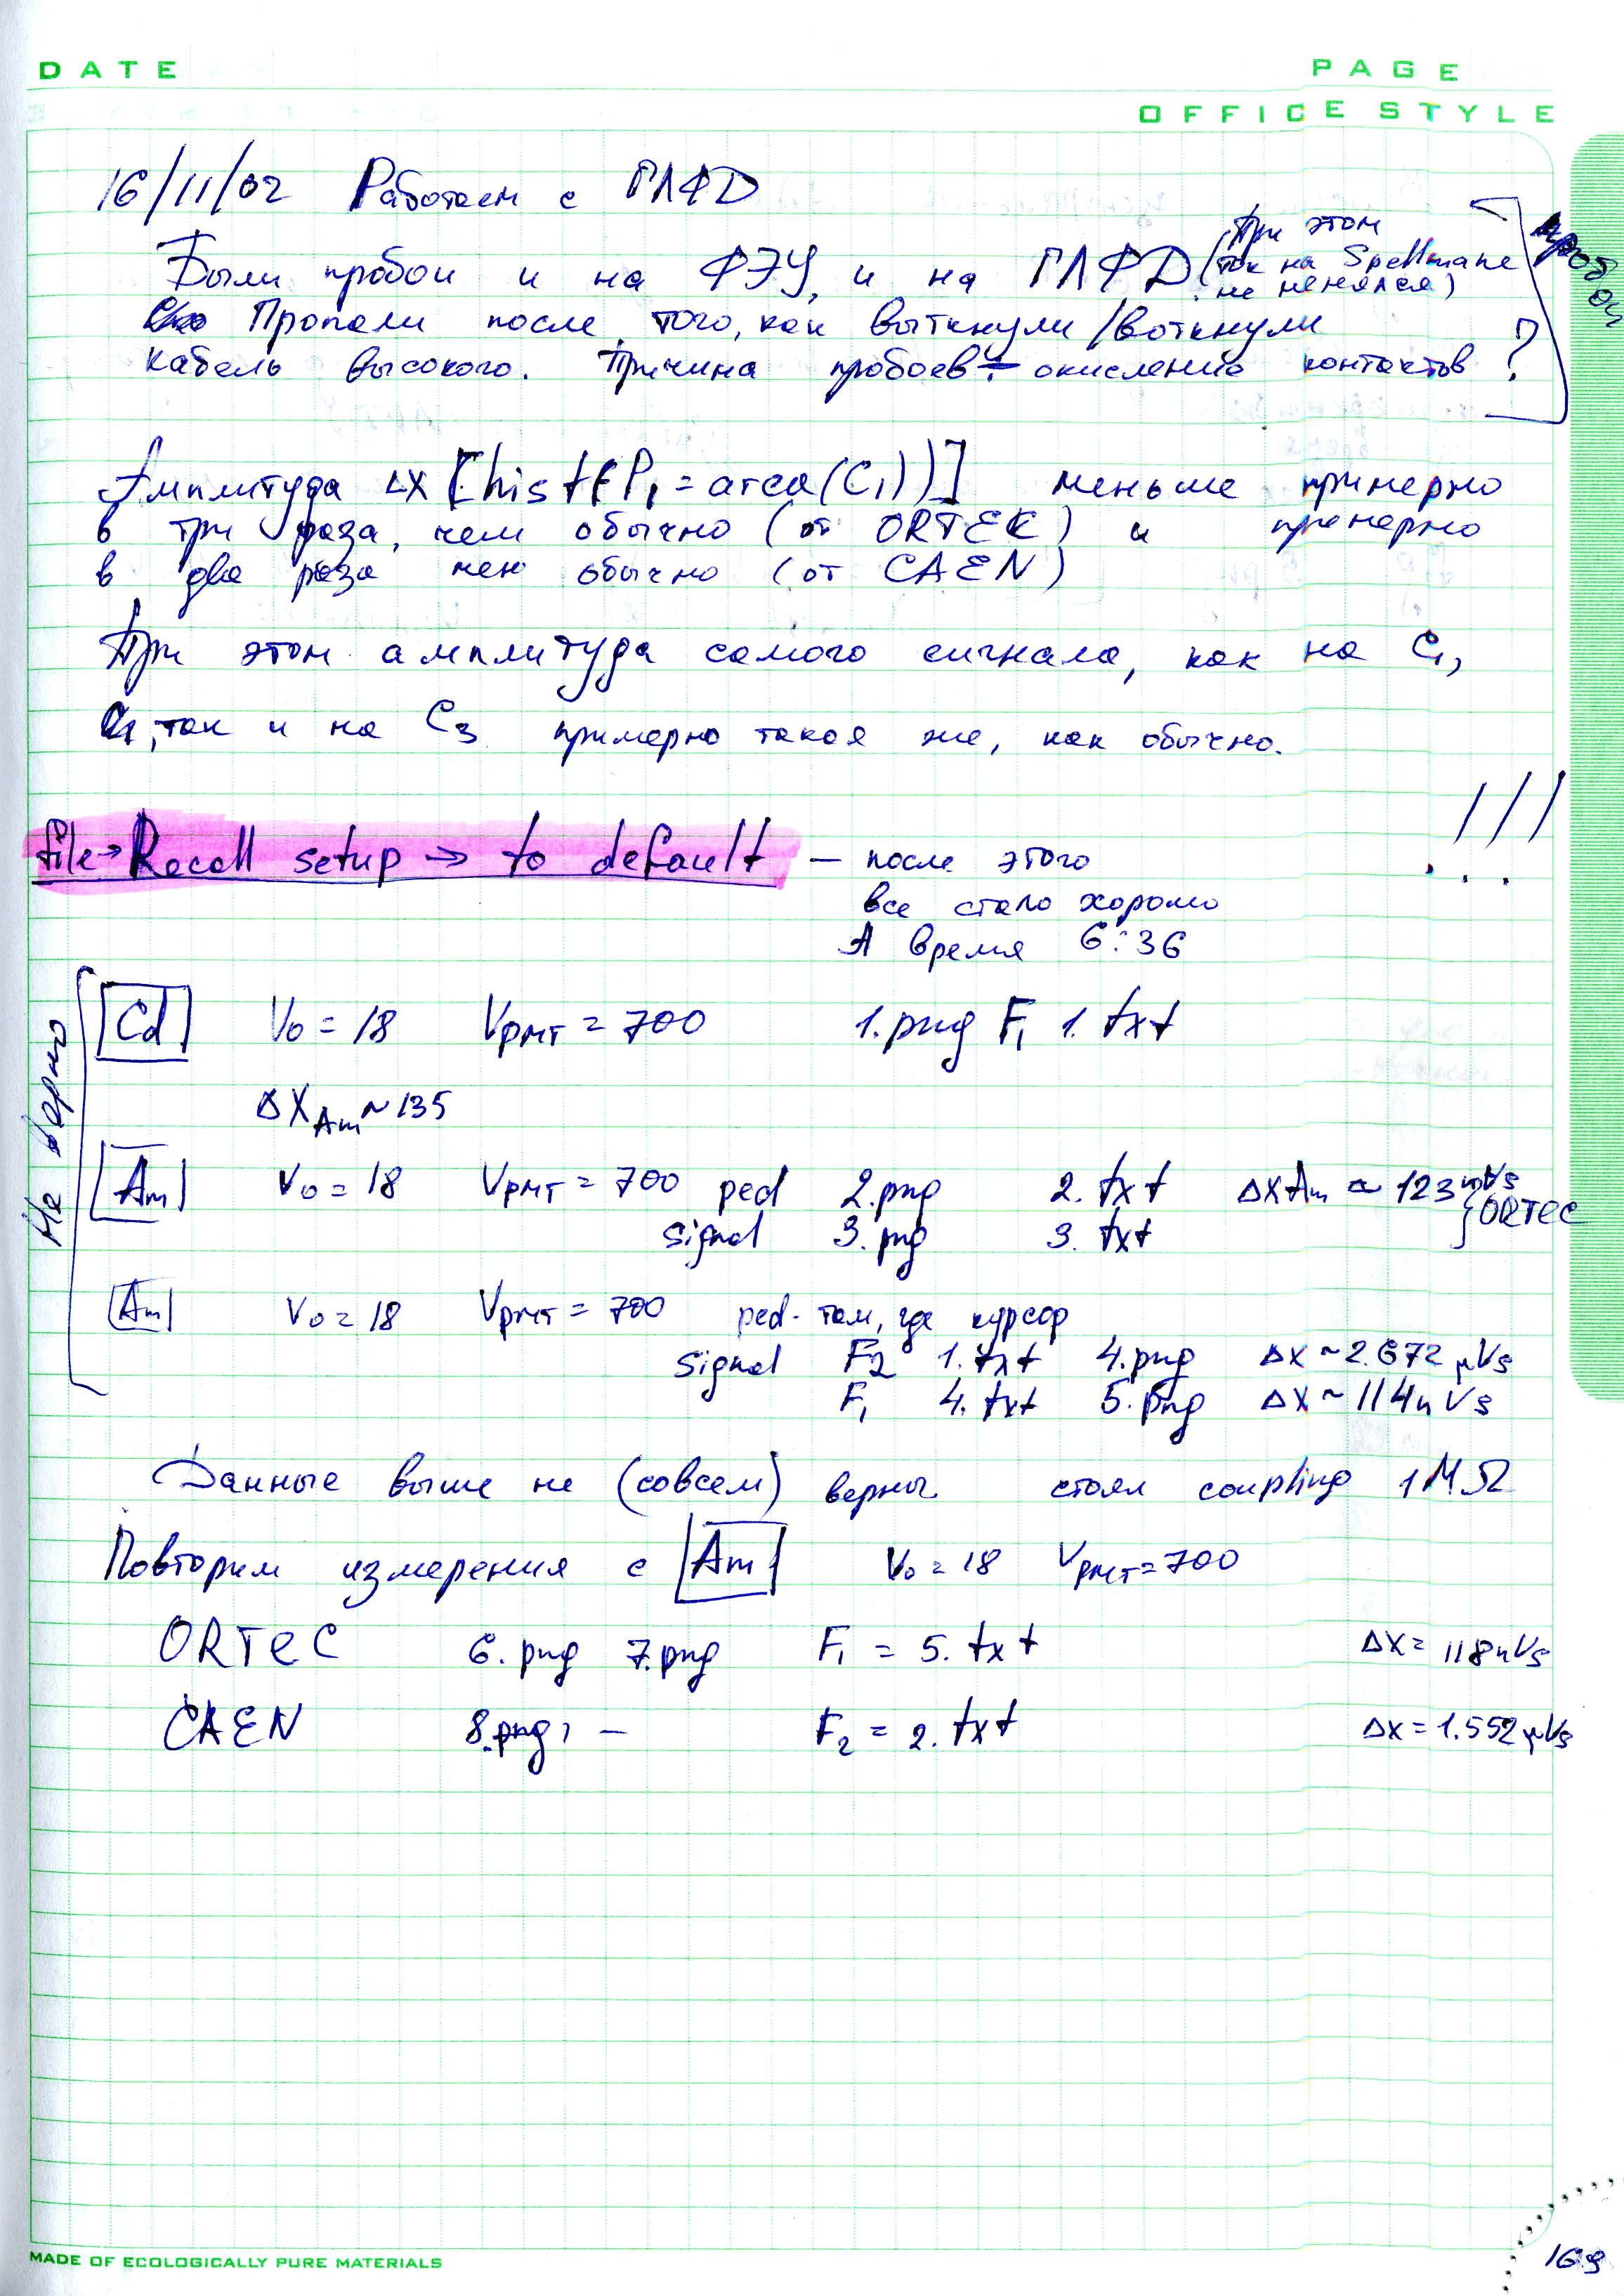 DATE
PAGE
OFFICE STYLE
16/11/02 Работаем с ГЛФД
Были пробои и на ФЭУ, и на ГЛФД (При этом
ток на Spellmane
не менялся)
пробои
Пропали после того, как выткнули/воткнули
кабель высокого. Причина пробоев - окисление контактов ?
Амплитуда ΔX [hist(P₁ = area(C₁))] меньше примерно
в три раза, чем обычно (от ORTEK) и примерно
в два раза чем обычно (от CAEN)
При этом амплитуда самого сигнала, как на C₁,
так и на C₃ примерно такая же, как обычно.
file → Recall setup → to default — после этого !!!
все стало хорошо
А время 6:36
Не верно
Cd V₀ = 18 VPMT = 700 1.png F₁ 1.txt
ΔXAm ~ 135
Am V₀ = 18 VPMT = 700 ped 2.png 2.txt ΔXAm ≈ 123 nVs
signal 3.png 3.txt } ORTEC
Am V₀ = 18 VPMT = 700 ped - там, где курсор
signal F₂ 1.txt 4.png ΔX ~ 2.672 μVs
F₁ 4.txt 5.png ΔX ~ 114 nVs
Данные выше не (совсем) верны стоял coupling 1 MΩ
Повторим измерения с Am V₀ = 18 VPMT = 700
ORTEC 6.png 7.png F₁ = 5.txt ΔX = 118 nVs
CAEN 8.png, — F₂ = 2.txt ΔX = 1.552 μVs
MADE OF ECOLOGICALLY PURE MATERIALS
169